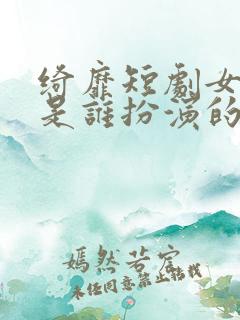 綺靡短劇女
是誰扮演的
嫣然若宮
未经同意禁止转载